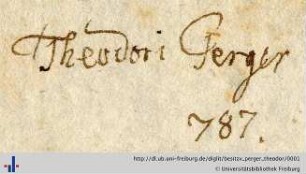 Theodori Perger
787.
http://dl.ub.uni-freiburg.de/diglit/besitzv_perger_theodor/0001
© Universitätsbibliothek Freiburg